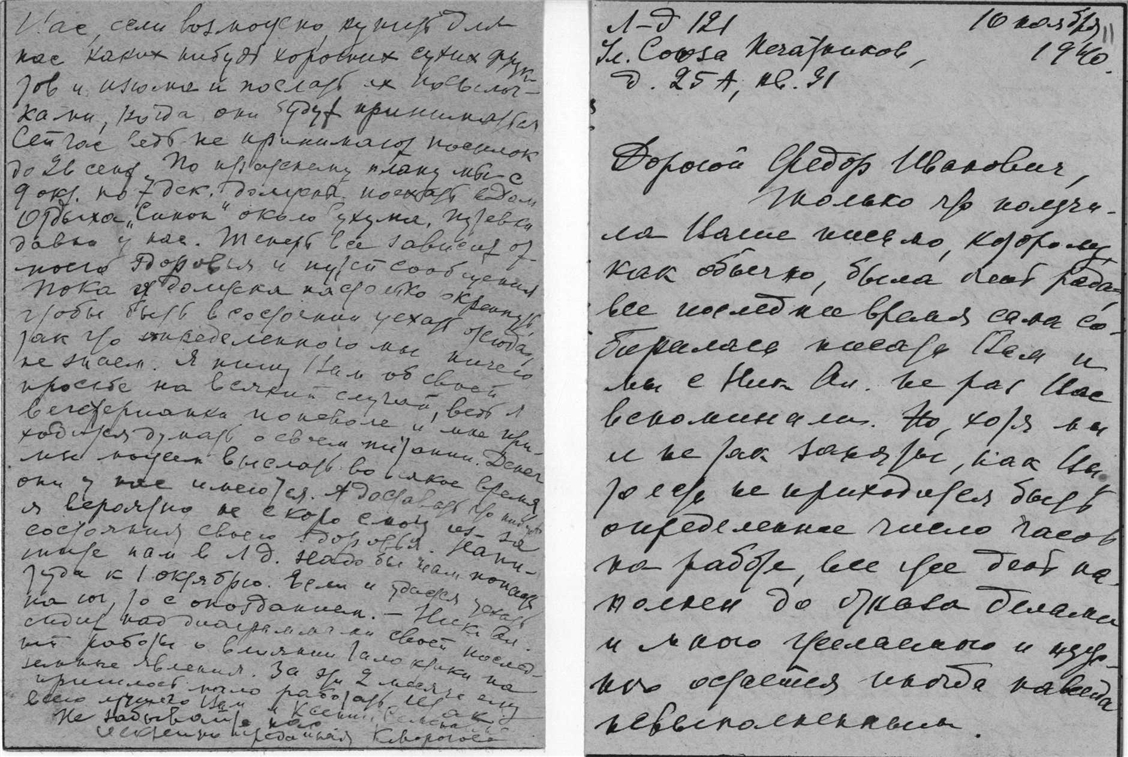 Вас, если возможно купить для
нас каких нибудь хороших сухих фрук-
тов и изюма и послать их посылоч-
ками, когда они будут приниматься
Сейчас ведь не принимают посылок
до 26 сент. По прежнему плану мы с
9 окт. по 7 дек. должны поехать в дом
отдыха „Синоп" около Сухума, путевки
давно у нас. Теперь все зависит от
моего здоровья и путей сообщения
Пока я должна настолько окрепнуть
чтобы быть в состоянии уехать отсюда,
так что определенного мы ничего
не знаем. Я пишу Вам об своей
просьбе на всякий случай, ведь я
вегетерианка поневоле и мне при-
ходится думать о своем питании. Деньги
мы можем выслать во всякое время
они у нас имеются. А доставать что нибудь
я вероятно не скоро смогу из за
состояния своего здоровья. Напи-
шите нам в Л-д. Надо бы нам попасть
туда к 1 октябрю. Если и удастся уехать
на юг, то с опозданием. — Ник. Ал.
сидит над диаграммами своей послед-
ней работы о влиянии на
земные явления. За эти 2 месяца ему
пришлось мало работать.
всего лучшего Вам и Ксении
Не забывайте нас
Искренно преданная К. Морозова
Л-д 121 10 ноября
Ул. Союза Печатников, 1940.
11
д. 25А, кв. 31
Дорогой Федор Иванович,
Только что получи-
ла Ваше письмо, которому,
как обычно, была рада,
все последнее время сама со-
биралась писать Вам и
мы с Ник. Ал. не раз Вас
вспоминали. Но, хотя мы
и не так заняты, как Вы,
то есть не приходится быть
определенное число часов
на работе, все же день на-
полнен до отказа делами
и много желаемого и нуж-
ного остается иногда навсегда
невыполненным.